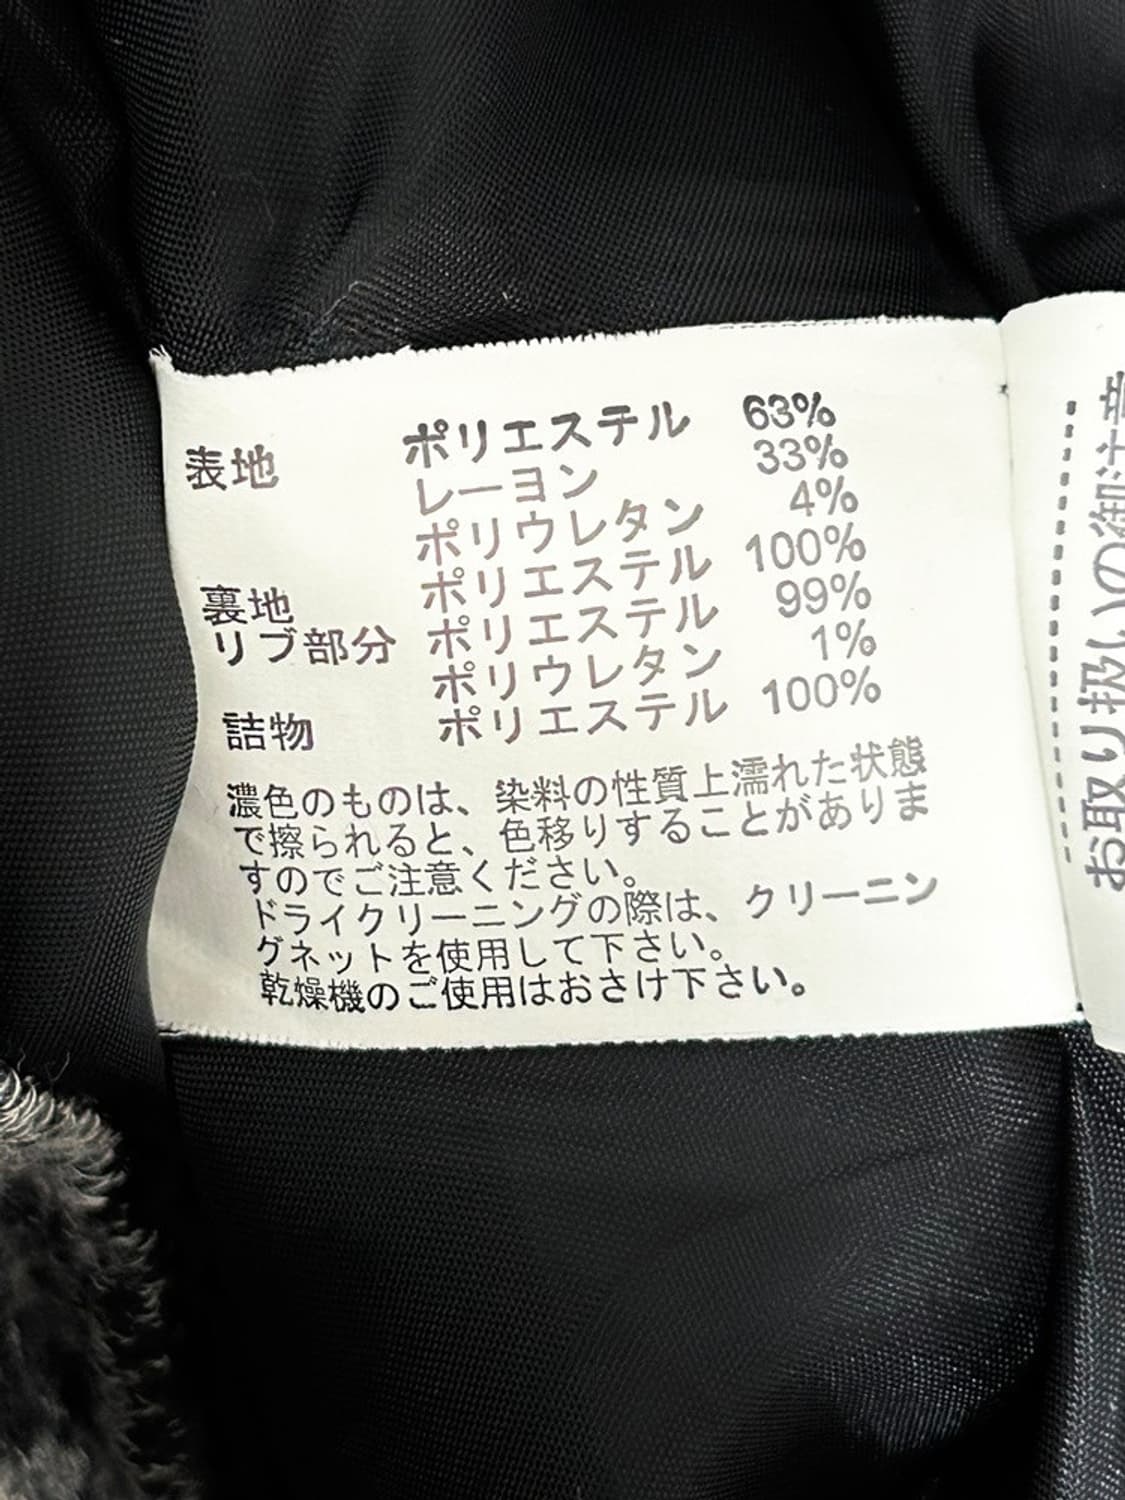 表地 ポリエステル 63%
レーヨン 33%
ポリウレタン 4%
裏地 ポリエステル 100%
リブ部分 ポリエステル 99%
ポリウレタン 1%
詰物 ポリエステル 100%
濃色のものは、染料の性質上濡れた状態
で擦られると、色移りすることがありま
すのでご注意ください。
ドライクリーニングの際は、クリーニン
グネットを使用して下さい。
乾燥機のご使用はおさけ下さい。
お取り扱いの御注意